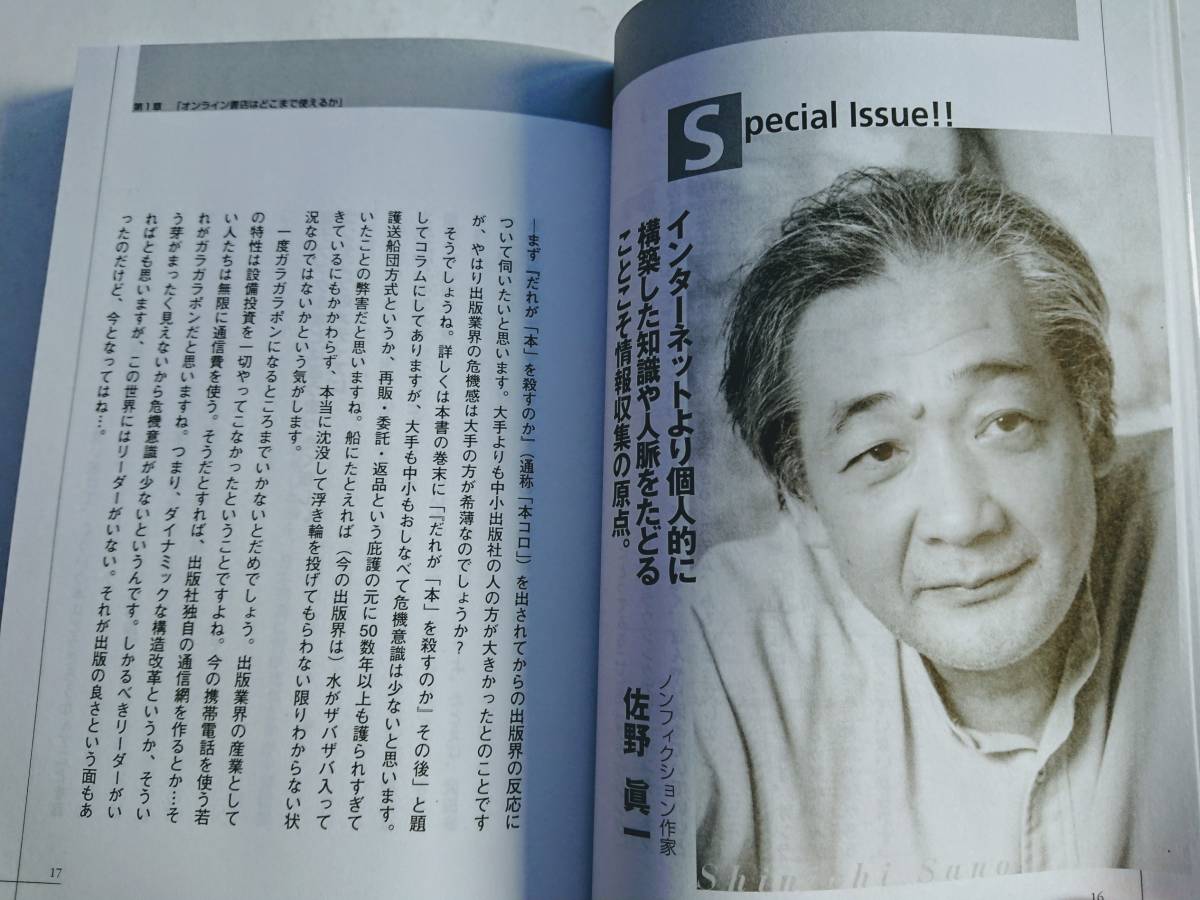 Special Issue!!
インターネットより個人的に
構築した知識や人脈をたどる
ことこそ情報収集の原点。
ノンフィクション作家
佐野 眞一
Shin-ichi Sano
16
第1章 「オンライン書店はどこまで使えるか」
―まず『だれが「本」を殺すのか』(通称「本コロ」)を出されてからの出版界の反応に
ついて伺いたいと思います。大手よりも中小出版社の人の方が大きかったとのことです
が、やはり出版業界の危機感は大手の方が希薄なのでしょうか?
そうでしょうね。詳しくは本書の巻末に「『だれが「本」を殺すのか』その後」と題
してコラムにしてありますが、大手も中小もおしなべて危機意識は少ないと思います。
護送船団方式というか、再販・委託・返品という庇護の元に50数年以上も護られすぎて
いたことの弊害だと思いますね。船にたとえれば(今の出版界は)水がザバザバ入って
きているにもかかわらず、本当に沈没して浮き輪を投げてもらわない限りわからない状
況なのではないかという気がします。
一度ガラガラポンになるところまでいかないとだめでしょう。出版業界の産業として
の特性は設備投資を一切やってこなかったということですよね。今の携帯電話を使う若
い人たちは無限に通信費を使う。そうだとすれば、出版社独自の通信網を作るとか…そ
れがガラガラポンだと思いますね。つまり、ダイナミックな構造改革というか、そうい
う芽がまったく見えないから危機意識が少ないというんです。しかるべきリーダーがい
ればとも思いますが、この世界にはリーダーがいない。それが出版の良さという面もあ
ったのだけど、今となってはね…。
17